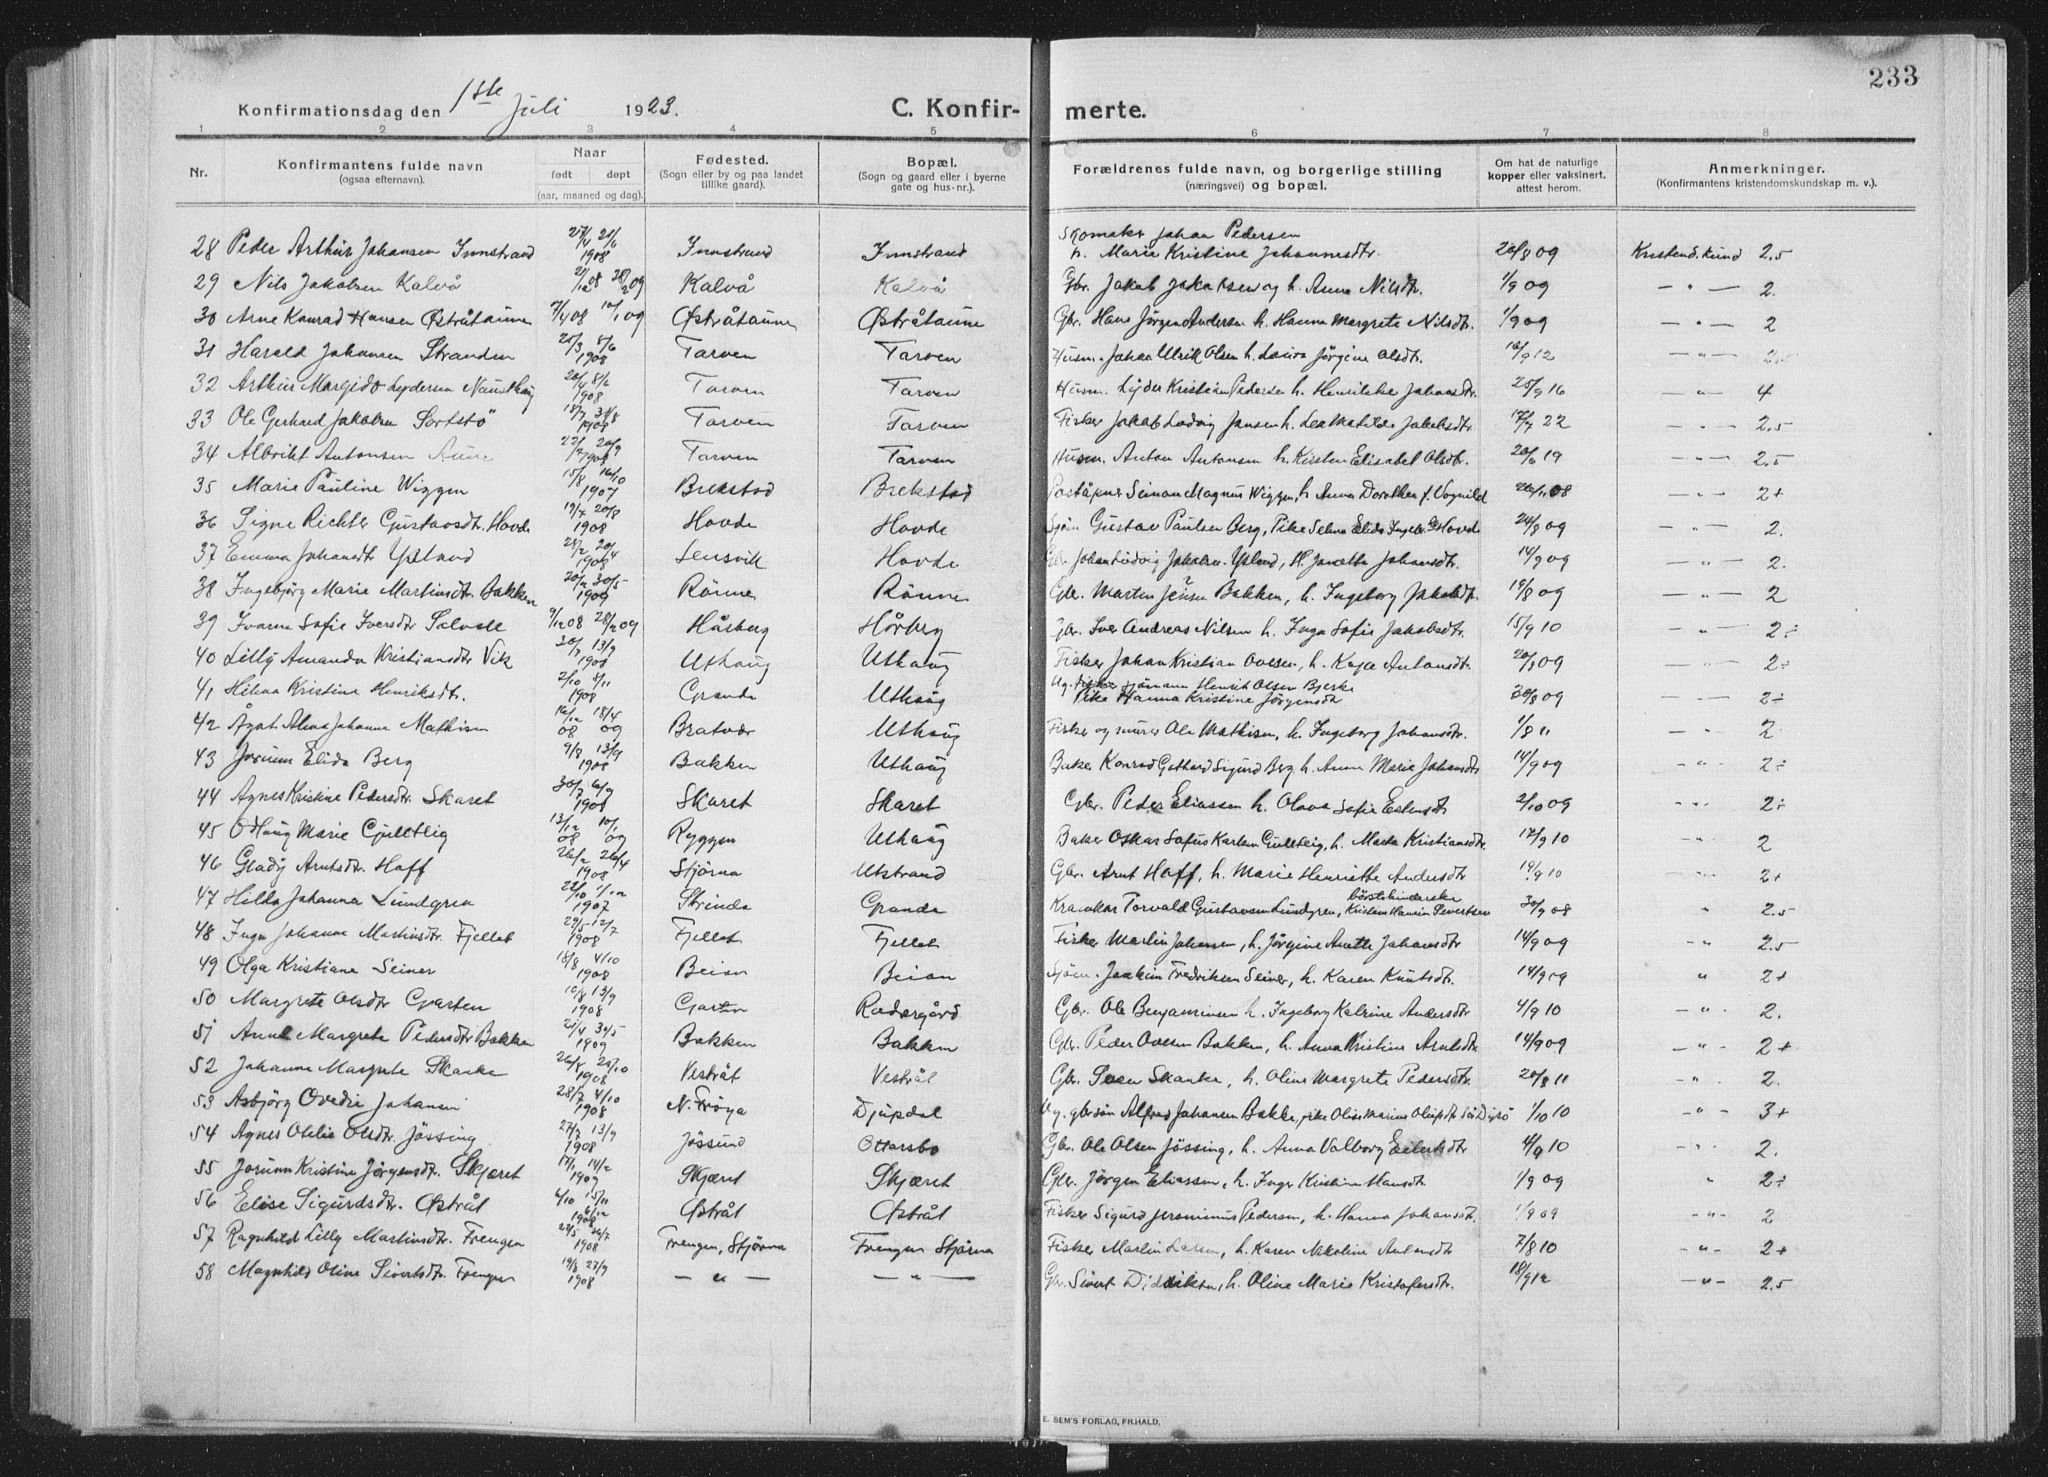 233
Konfirmationsdag den 1ste Juli 1923.
C. Konfir- merte.
1 2 3 4 5 6 7 8
Nr. Konfirmantens fulde navn (ogsaa efternavn). Naar født døpt (aar, maaned og dag). Fødested. (Sogn eller by og paa landet tillike gaard). Bopæl. (Sogn og gaard eller i byerne gate og hus-nr.). Forældrenes fulde navn, og borgerlige stilling (næringsvei) og bopæl. Om hat de naturlige kopper eller vaksinert, attest herom. Anmerkninger. (Konfirmantens kristendomskundskap m. v.).
28 Peder Arthur Johansen Innstrand 27/4 21/6 1908 Innstrand Innstrand Skomaker Johan Pedersen h. Marie Kristine Johannesdtr. 20/8 09 Kristend.kund 2.5
29 Nils Jakobsen Kalvå Kalvå Kalvå Gbr. Jakob Jakobsen og h. Anna Nilsdtr. 1/9 09 — " — 2.
30 Arne Konrad Hansen Østråtaune 7/4 08 10/1 09 Østråtaune Østråtaune Gbr. Hans Jørgen Andersen h. Hanna Margrete Nilsdtr. 1/9 09 — " — 2
31 Harald Johansen Stranden 21/3 8/6 1908 Tarven Tarven Husm. Johan Ulrik Olsen h. Lovisa Jørgine Olsdtr. 10/9 12 — " — 2.5
32 Arthur Margido Lydersen Nausthaug 20/4 8/6 1908 Tarven Tarven Husm. Lyder Kristian Pedersen h. Henrikke Johansdtr. 25/9 16 — " — 4
33 Ole Gerhard Jakobsen Sortstø 18/7 31/8 1908 Tarven Tarven Fisker Jakob Ludvig Jansen h. Lea Matilde Jakobsdtr 17/7 22 — " — 2.5
34 Albrikt Antonsen Aune 1908 Tarven Tarven Husm. Anton Antonsen h. Kirsten Elisabet Olsdtr. 20/6 19 — " — 2.5
35 Marie Pauline Wiggen 15/8 16/10 1907 Brekstad Brekstad Poståpner Simon Magnus Wiggen, h. Anna Dorothea f. Vognild 26/11 08 — " — 2+
36 Signe Richter Gustavsdtr. Hovde 19/7 20/8 1908 Hovde Hovde Sjøm Gustav Paulsen Berg, Pike Selma Elida Hovde 24/8 09 — " — 2.
37 Emma Johansdtr Ysland 1908 Lensvik Hovde Gbr. Johan Ludvig Jakobsen Ysland, H. Janette Johansdtr. 14/9 09 — " — 2.
38 Ingebjørg Marie Martinsdtr. Bakken 20/2 30/5 1909 Rønne Rønne Gbr. Martin Jensen Bakken, h. Ingeborg Jakobsdtr. 19/8 09 — " — 2
39 Ivarna Sofie Iversdtr Solvoll 9/12 08 28/2 09 Håsberg Hårberg Gbr. Iver Andreas Nilsen h. Inga Sofie Jakobsdtr. 15/9 10 — " — 2÷
40 Lilly Amanda Kristiansdtr Vik 20/7 13/9 1908 Uthaug Uthaug Fisker Johan Kristian Ovesen, h. Kaja Antonsdtr. — " — 2÷
41 Hilma Kristine Henriksdtr. 2/10 8/11 1908 Grande Uthaug Ug. sjømann Henrik Olsen Bjerke Pike Hanna Kristine Jørgensdtr 30/8 09 — " — 2÷
42 Ågot Alma Johanne Mathisen 16/12 08 18/4 09 Bratvær Uthaug Fisker og murer Ole Mathisen, h. Ingeborg Johansdtr. 1/8 11 — " — 2
43 Jorunn Elida Berg 9/8 13/9 1908 Bakken Uthaug Baker Konrad Gothard Sigurd Berg h. Anna Marie Johansdtr 14/9 09 — " — 2÷
44 Agnes Kristine Pedersdtr. Skaret 30/7 6/9 1908 Skaret Skaret Gbr. Peder Eliassen h. Olava Sofie Estensdtr 2/10 09 - " - 2÷
45 Odlaug Marie Gulteig 13/12 08 10/1 09 Ryggen Uthaug Baker Oskar Sofus Karlsen Gulteig, h. Marta Kristiansdtr. 17/9 10 " 2
46 Glady Arntsdtr. Hoff 26/2 26/4 1908 Stjørna Utstrand Gbr. Arnt Hoff, h. Marie Henriette Andersdtr 19/9 10 — " — 2+
47 Hilda Johanna Lundgren 22/10 1/12 1907 Strinda Grande Kramkar Torvald Gustavsen Lundgren, børstebinderske Kristine Hansine Sivertsen 30/9 08 " 2.5
48 Inga Johanne Martinsdtr. Fjellet 29/5 12/7 1908 Fjellet Fjellet Fisker Martin Johansen, h. Jørgine Anette Johansdtr 14/9 09 - " - 2.5
49 Olga Kristiane Seiner 18/8 4/10 1908 Beian Beian Sjøm. Joakim Fredriksen Seiner, h. Karen Knutsdtr. 14/9 09 " 2+
50 Margrete Olsdtr Garten 10/8 13/9 1908 Garten Rødsgård Gbr. Ole Benjaminsen h. Ingeborg Katrine Andersdtr 4/9 10 — " — 2.
51 Anna Margrete Pedersdtr Bakken 21/4 30/5 1909 Bakken Bakken Gbr. Peder Ovesen Bakken, h. Anna Kristine Arntsdtr 14/9 09 — " — 2+
52 Johanne Margrete Skanke 26/8 20/10 1908 Vestråt Vestråt Gbr. Skanke, h. Oline Margrete Pedersdtr. 20/8 11 - " - 2.
53 Asbjørg Ovedie Johansen 28/7 4/10 1908 N. Frøya Djupdal Ug. gbrsøn Alfred Johansen Bakke, pike Olise Marie 1/10 10 - " - 3+
54 Agnes Otelie Olsdtr. Jøssing 27/7 13/9 1908 Jøssund Ottersbo Gbr. Ole Olsen Jøssing, h. Anna Valborg Eilertsdtr 4/9 10 — " — 2.
55 Jorunn Kristine Jørgensdtr. Skjæret 17/1 14/2 1909 Skjæret Skjæret Gbr. Jørgen Eliassen, h. Inger Kristine Hansdtr 1/9 09 " 2÷
56 Elise Sigurdsdtr. Østråt 4/10 15/11 1908 Østråt Østråt Fisker Sigurd Jeronimus Pedersen, h. Hanna Johansdtr. 1/9 09 - " - 2
57 Ragnhild Lilly Martinsdtr. Frengen 1908 Frengen, Stjørna Frengen Stjørna Fisker Martin Larsen, h. Karen Nikoline Antonsdtr 7/8 10 - " - 2+
58 Magnhild Oline Sivertsdtr. Frengen 19/8 27/9 1908 — " — — " — Gbr. Sivert Didriksen, h. Oline Marie Kristofersdtr. 18/9 12 — " — 2.5
E. SEM'S FORLAG, FR.HALD.